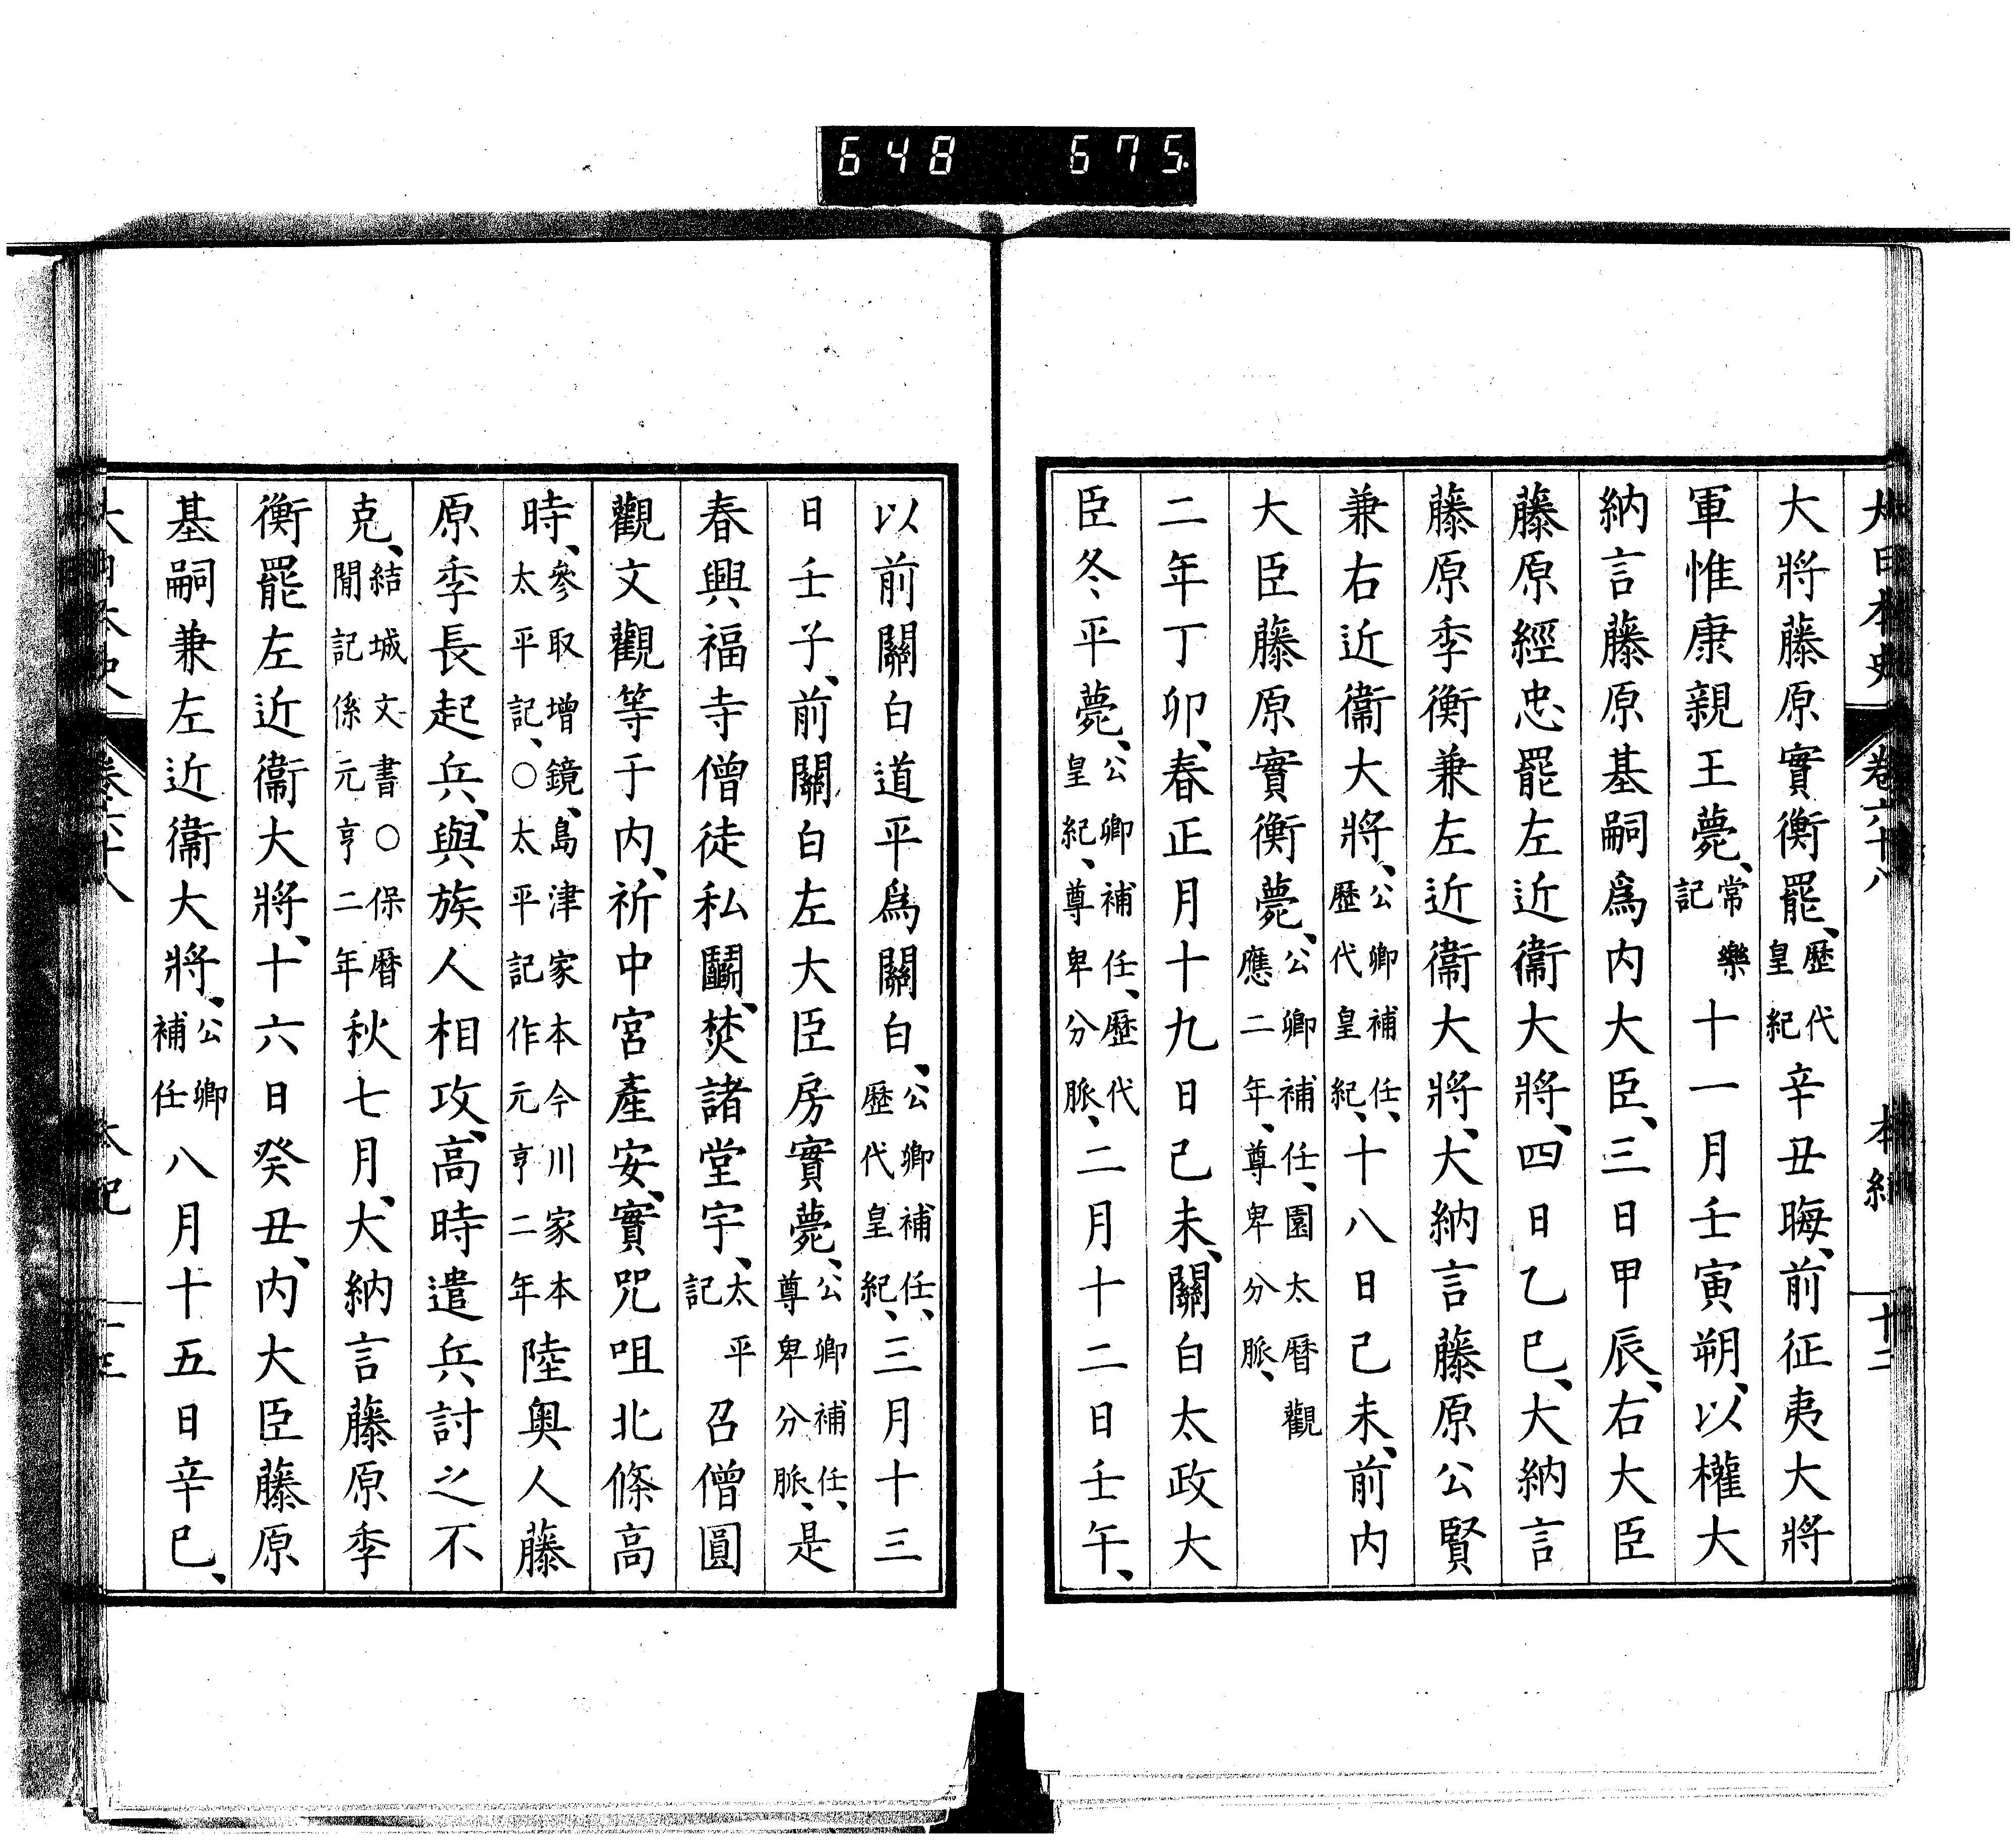 648 675
大日本史 卷六十八 本紀 十二
大將藤原實衡罷、歷代皇紀辛丑晦、前征夷大將
軍惟康親王薨、常樂記十一月壬寅朔、以權大
納言藤原基嗣爲内大臣、三日甲辰、右大臣
藤原經忠罷左近衞大將、四日乙巳、大納言
藤原季衡兼左近衞大將、大納言藤原公賢
兼右近衞大將、公卿補任、歷代皇紀、十八日己未、前内
大臣藤原實衡薨、公卿補任、園太曆觀應二年、尊卑分脈、
二年丁卯、春正月十九日己未、關白太政大
臣冬平薨、公卿補任、歷代皇紀、尊卑分脈、二月十二日壬午、
以前關白道平爲關白、公卿補任、歷代皇紀、三月十三
日壬子、前關白左大臣房實薨、公卿補任、尊卑分脈、是
春興福寺僧徒私鬭、焚諸堂宇、太平記召僧圓
觀文觀等于内、祈中宮產安、實咒咀北條高
時、參取增鏡、島津家本今川家本太平記、○太平記作元亨二年陸奥人藤
原季長起兵、與族人相攻、高時遣兵討之不
克、結城文書○保曆間記係元亨二年秋七月、大納言藤原季
衡罷左近衞大將、十六日癸丑、内大臣藤原
基嗣兼左近衞大將、公卿補任八月十五日辛巳、
大日本史 卷六十八 本紀 十三